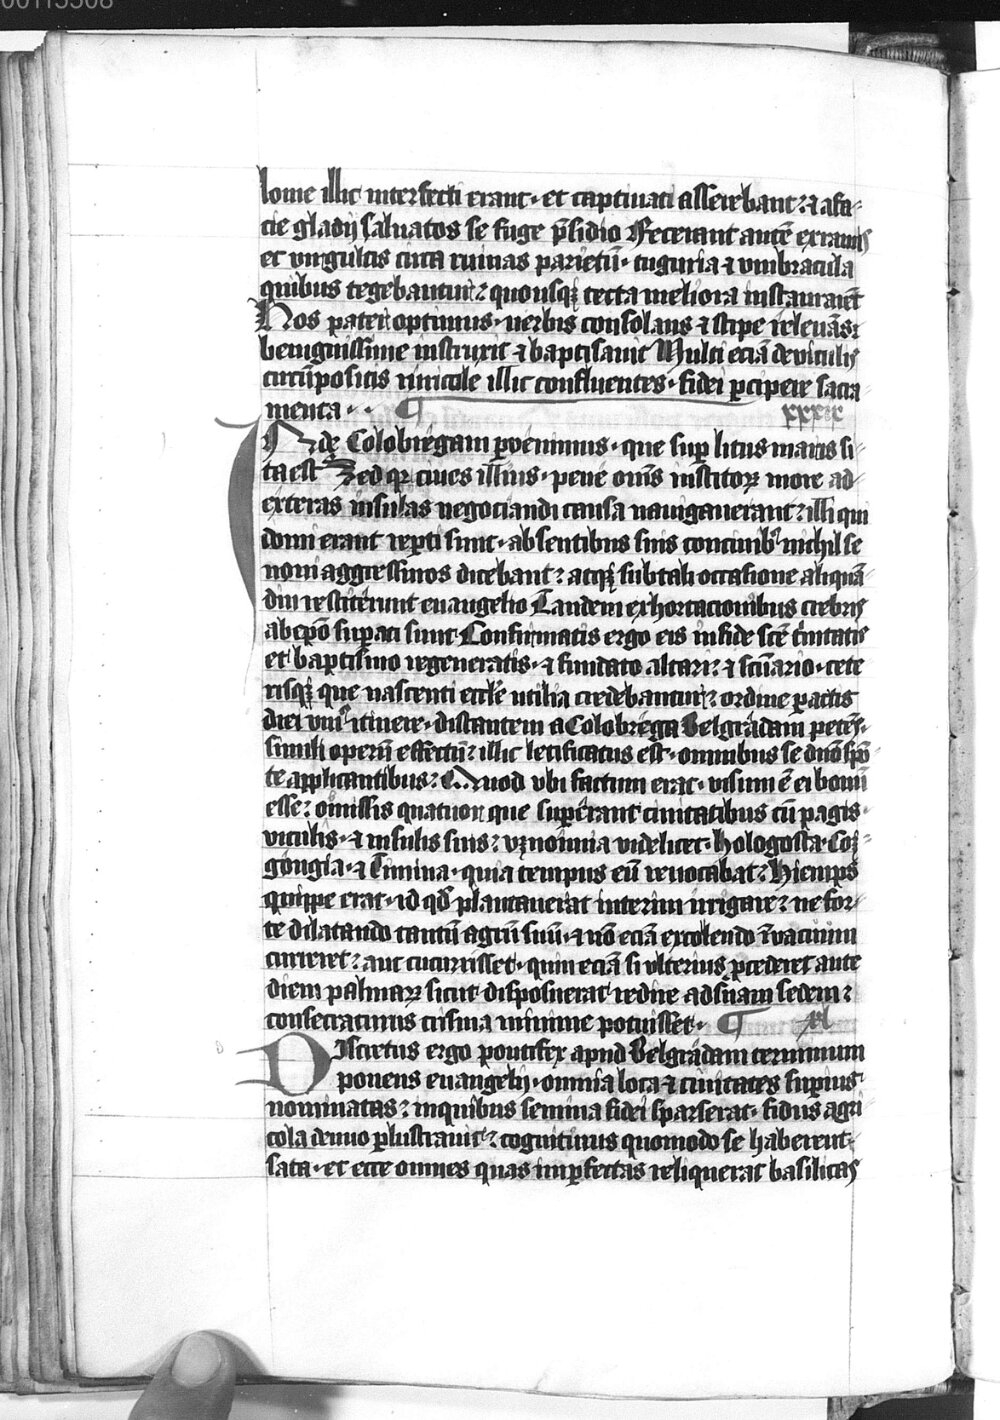 00115508
lonie illic interfecti erant· et captiuati asserebant: ⁊ a fa-
cie gladij saluatos se fuge p̄sidio Fecerant autē ex ramis
et virgultis circa ruinas parietū· tuguria ⁊ vmbracula
quibus tegebantur: quousqꝫ tecta meliora instaurarēt
Nos pater optimus· verbis consolans ⁊ stipe releuās:
benignissime instruxit ⁊ baptisauit Multi eciā de viculis
circūpositis ruricole illic confluentes· fidei ꝑcipere sacra
menta·· ¶ xxxix
Inde Colobregam ꝑuenimus· que suꝑ litus maris si-
ta est Sed qꝛ ciues illius· pene om̄s institoꝝ more ad
exteras insulas negociandi causa nauigauerant: illi qui
domi erant reꝑti sunt· absentibus suis conciuibꝰ nichil se
noui aggressuros dicebant: atqꝫ sub tali occasione aliquā-
diu restiterunt euangelio Tandem exhortacionibus crebris
ab ep̄o suꝑati sunt Confirmatis ergo eis in fide sc̄e t̄nitatis
et baptismo regeneratis· ⁊ fundato altari: ⁊ sc̄uario· cete
risqꝫ que nascenti eccl̄e utilia credebantur: ordine ꝑactis
diei vniꝰ itinere· distantem a Colobrega Belgradam petēs·
simili operū effectu: illic letificatus est· omnibus se dn̄o spō
te applicantibus: Quod vbi factum erat· visum ē ei bonū
esse: omissis quatuor que suꝑerant ciuitatibus cū pagis·
viculis· ⁊ insulis suis: vꝫ noīnia videlicet· hologosta· Coꝫ-
gongia· ⁊ Timina· quia tempus eū reuocabat: Hiemps
quippe erat· id qd̄ plantauerat interim irrigare: ne for-
te dilatando tantū agrū suū· ⁊ nō eciā excolendo ī vacuum
curreret: aut cucurrisset· quin eciā si vlterius ꝓcederet ante
diem palmaꝝ sicut disposuerat redire ad suam sedem:
consecraturus crisma minime potuisset· ¶ xl
Discretus ergo pontifex apud Belgradam terminum
ponens euangelij· omnia loca ⁊ ciuitates suꝑius
nominatas: in quibus semina fidei sparserat· fidus agri
cola denuo ꝑlustrauit: cogniturus quomodo se haberent
sata· et ecce omnes quas imꝑfectas reliquerat basilicas